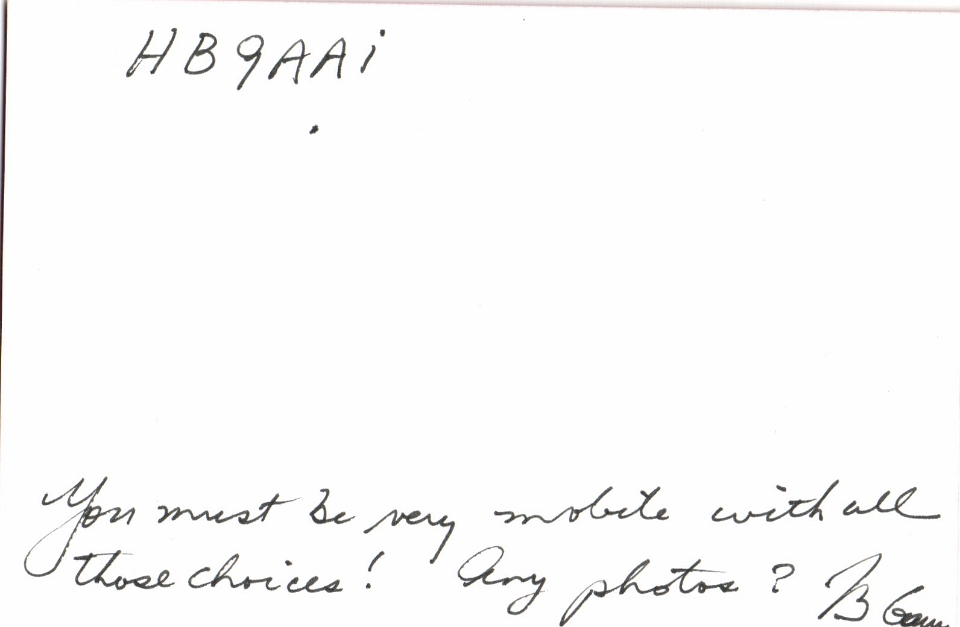 HB9AAi
You must be very mobile with all
those choices! Any photos? B